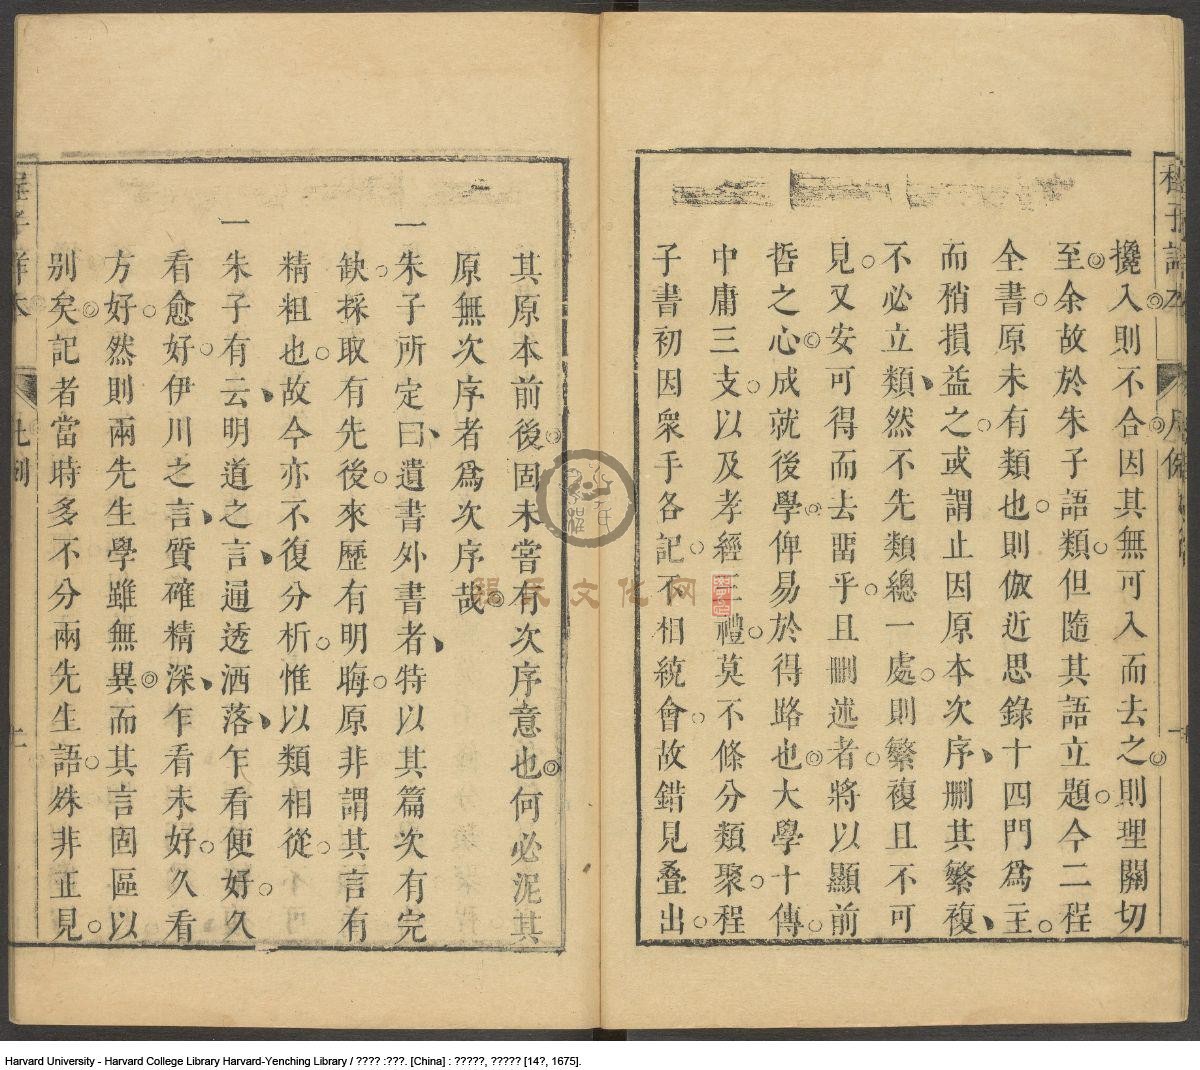 攙入則不合因其無可入而去之則理關切
至余故於朱子語類但隨其語立題今二程
全書原未有類也則倣近思錄十四門爲主
而稍損益之或謂止因原本次序刪其繁複
不必立類然不先類總一處則繁複且不可
見又安可得而去畱乎且刪述者將以顯前
哲之心成就後學俾易於得路也大學十傳
中庸三支以及孝經三禮莫不條分類聚程
子書初因衆手各記不相統會故錯見叠出
其原本前後固未嘗有次序意也何必泥其
原無次序者爲次序哉
一朱子所定曰遺書外書者特以其篇次有完
缺採取有先後來歷有明晦原非謂其言有
精粗也故今亦不復分析惟以類相從
一朱子有云明道之言通透洒落乍看便好久
看愈好伊川之言質確精深乍看未好久看
方好然則兩先生學雖無異而其言固區以
別矣記者當時多不分兩先生語姝非正見
Harvard University - Harvard College Library Harvard-Yenching Library / ???? :???. [China] : ?????, ????? [14?, 1675].